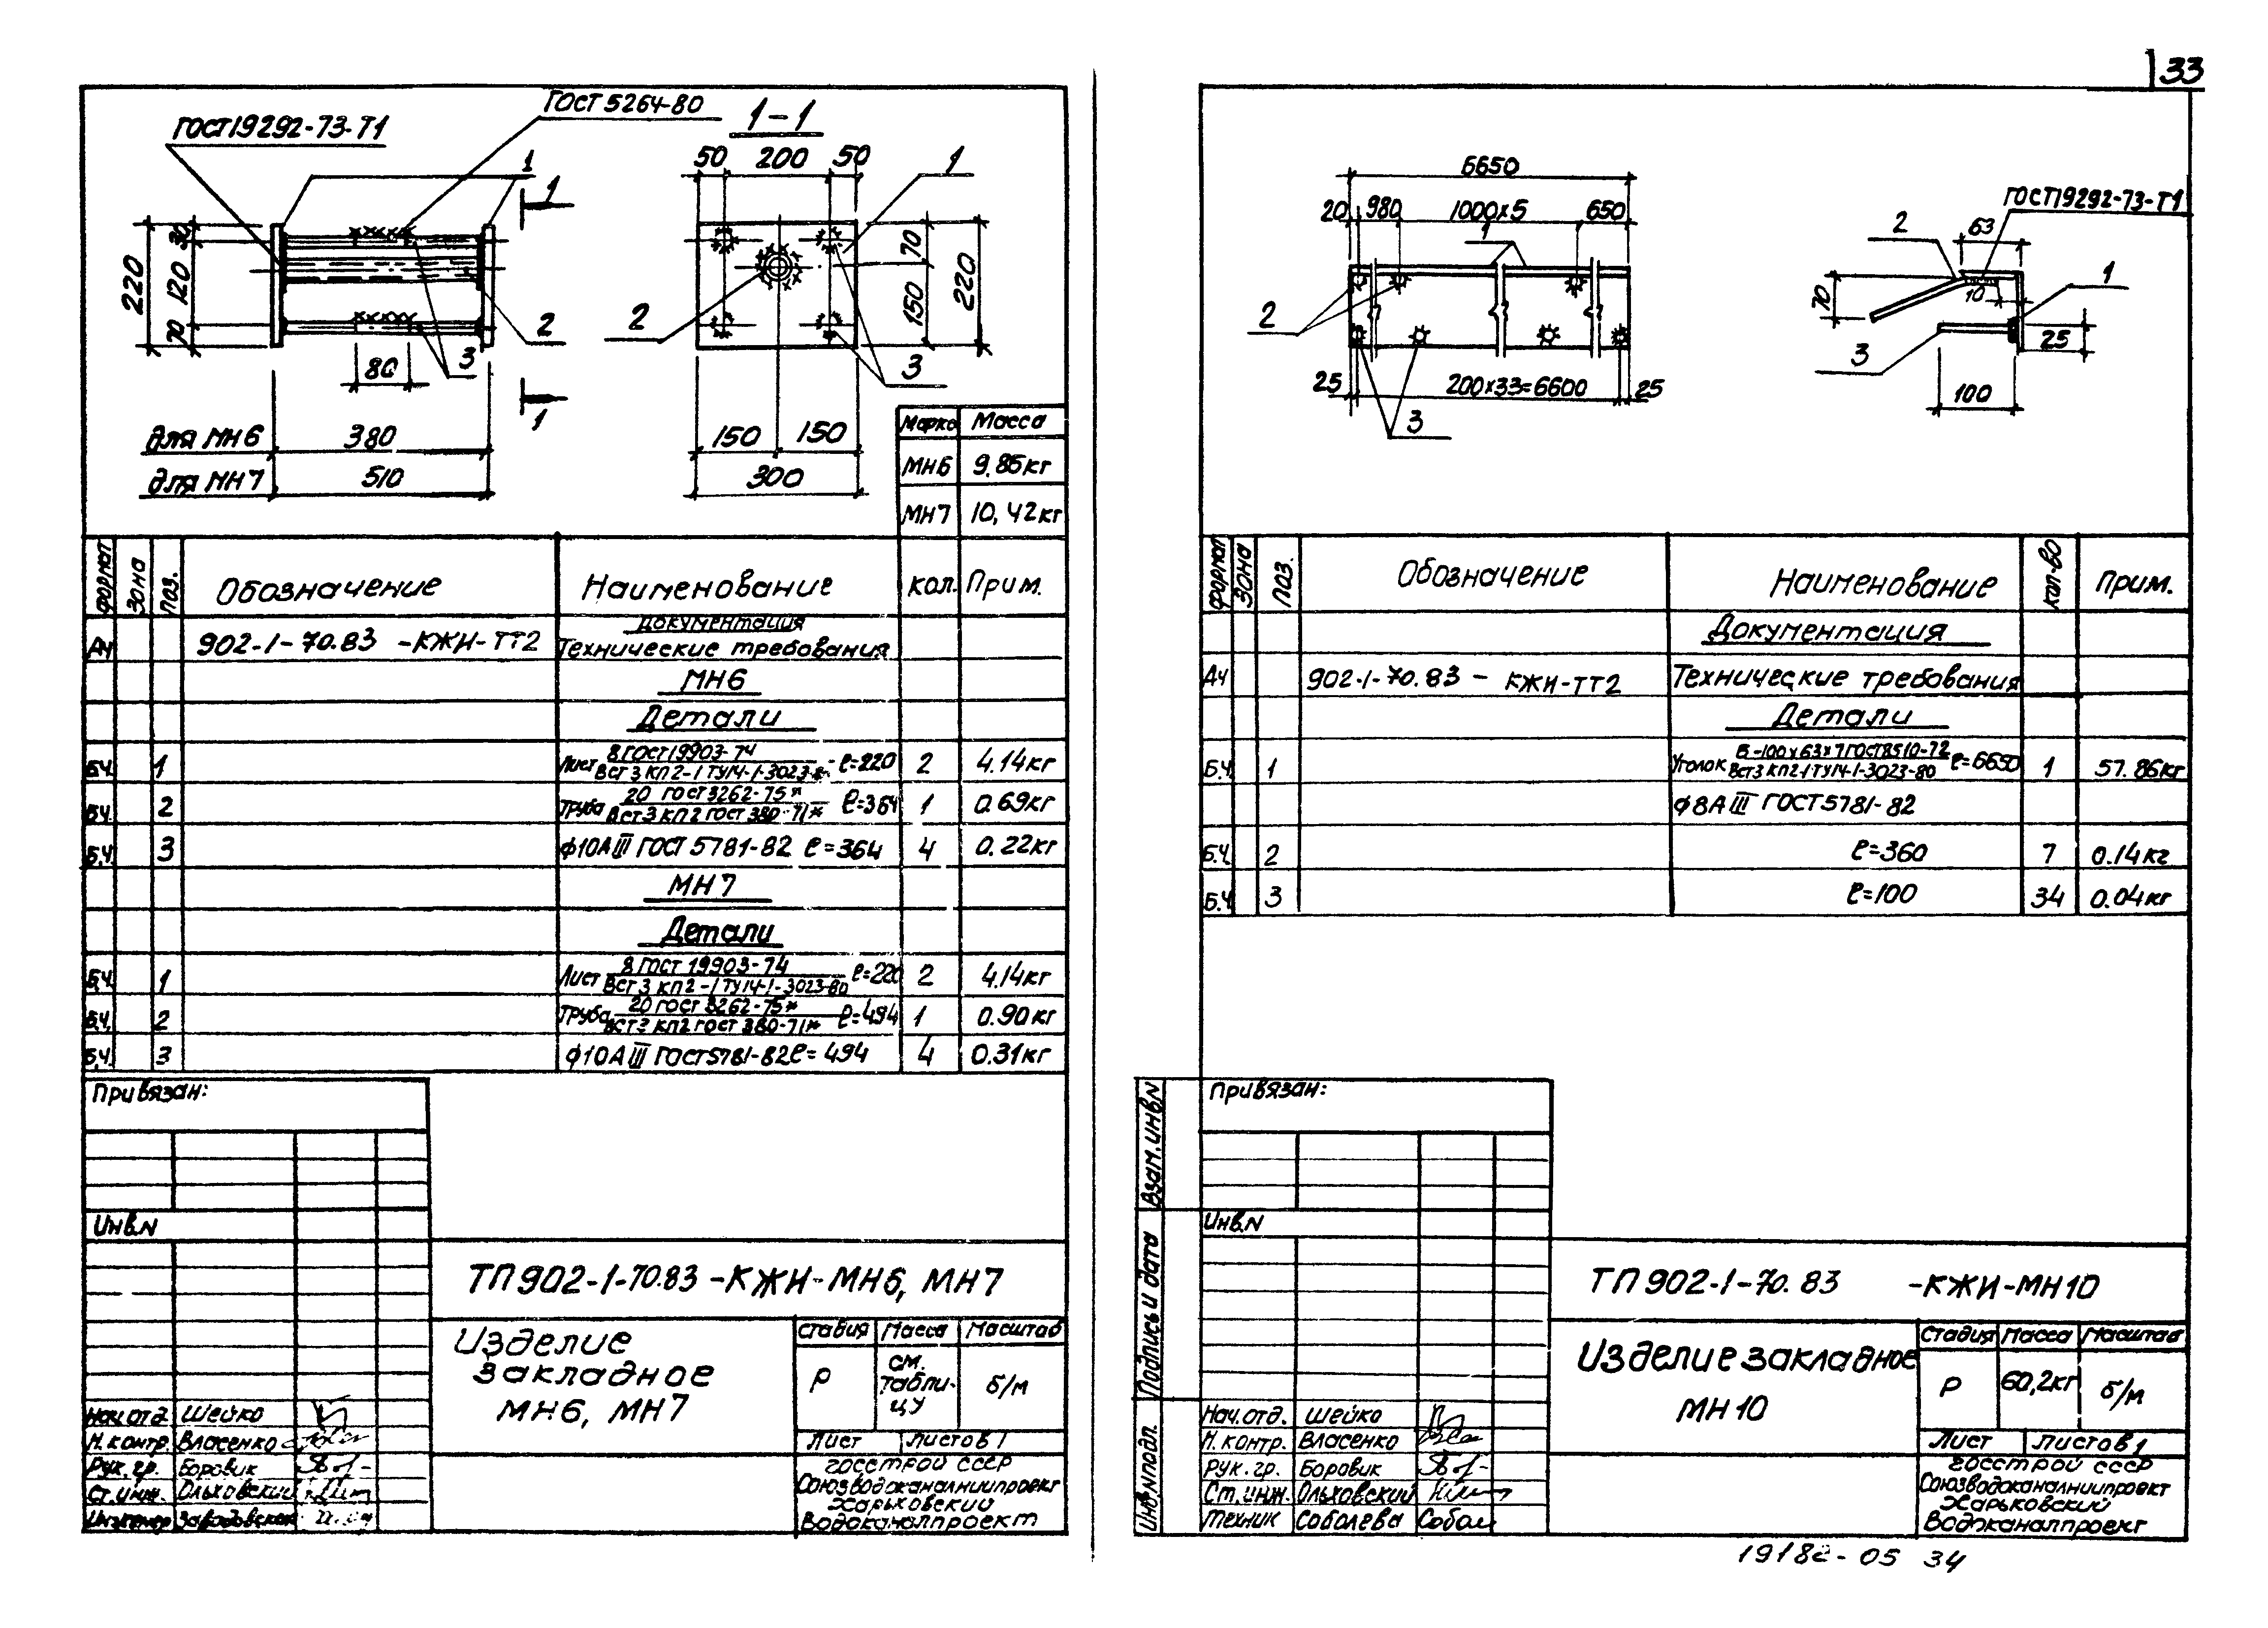 33
ГОСТ19292-73-Т1
ГОСТ 5264-80
1-1
50 200 50
1
1
1
220
30
120
70
80
3
2
1
для МН6 380
для МН7 510
2
3
70
150
220
150 150
300
Марка Масса
МН6 9.85кг
МН7 10,42кг
формат Зона Поз. Обозначение Наименование кол. Прим.
Документация
А4 902-1-70.83 -КЖИ-ТТ2 Технические требования
МН6
Детали
Б.Ч. 1 Лист 8 ГОСТ19903-74 / ВСт 3 КП 2-1 ТУ14-1-3023-80 ℓ=220 2 4.14кг
Б.Ч. 2 Труба 20 ГОСТ3262-75* / ВСт 3 КП 2 ГОСТ 380-71* ℓ=364 1 0.69кг
Б.Ч. 3 ф10АIII ГОСТ 5781-82 ℓ=364 4 0.22кг
МН7
Детали
Б.Ч. 1 Лист 8 ГОСТ 19903-74 / ВСт 3 КП 2-1 ТУ14-1-3023-80 ℓ=220 2 4.14кг
Б.Ч. 2 Труба 20 ГОСТ 3262-75* / ВСт 3 КП2 ГОСТ 380-71* ℓ=494 1 0.90кг
Б.Ч. 3 ф10АIII ГОСТ5781-82 ℓ=494 4 0.31кг
Привязан:
Инв.N
ТП902-1-70.83 -КЖИ-МН6, МН7
Изделие
закладное
МН6, МН7
Стадия Масса Масштаб
Р
см.
табли-
цу
б/м
Лист Листов 1
Нач.отд. Шейко
Н.контр. Власенко
Рук.гр. Боровик
Ст.инж. Ольховский
Инженер
Госстрой СССР
Союзводоканалниипроект
Харьковский
Водоканалпроект
6650
20 980 1000x5 650
1
2
25 200x33=6600 25
3
ГОСТ19292-73-Т1
2
63
1
70
10
25
3
100
формат Зона Поз. Обозначение Наименование кол-во Прим.
Документация
А4 902-1-70.83 - КЖИ-ТТ2 Технические требования
Детали
Б.Ч. 1 Уголок Б-100x63x7 ГОСТ8510-72 / ВСт3 КП2-1 ТУ14-1-3023-80 ℓ=6650 1 57.86кг
ф8АIII ГОСТ5781-82
Б.Ч. 2 ℓ=360 7 0.14кг
Б.Ч. 3 ℓ=100 34 0.04кг
Взам.инв.N
Подпись и дата
Инв.N подл.
Привязан:
Инв.N
ТП902-1-70.83 -КЖИ-МН10
Изделие закладное
МН10
Стадия Масса Масштаб
Р 60,2кг б/м
Лист Листов 1
Нач.отд. Шейко
Н.контр. Власенко
Рук.гр. Боровик
Ст.инж. Ольховский
Техник Соболева Собол
Госстрой СССР
Союзводоканалниипроект
Харьковский
Водоканалпроект
19182-05 34